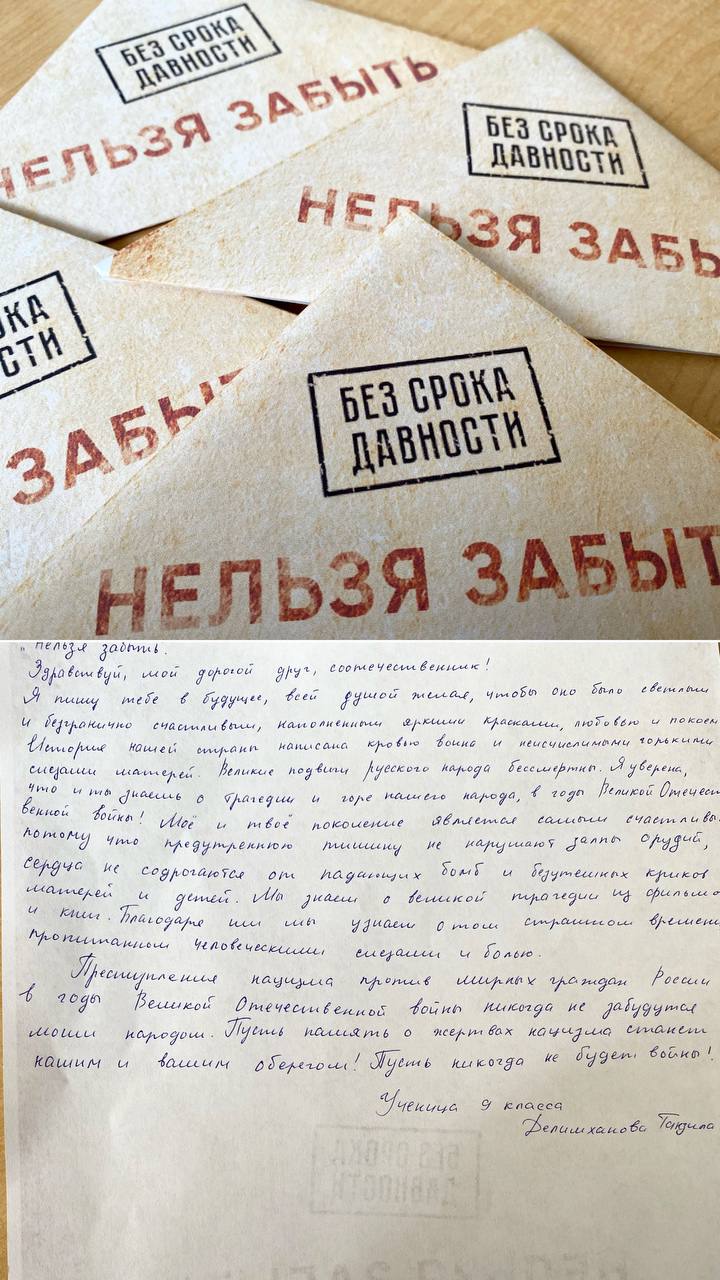 БЕЗ СРОКА
ДАВНОСТИ
НЕЛЬЗЯ ЗАБЫТЬ
БЕЗ СРОКА
ДАВНОСТИ
НЕЛЬЗЯ ЗАБЬ
ОКА
СТИ
ЗАБЫ
БЕЗ СРОКА
ДАВНОСТИ
НЕЛЬЗЯ ЗАБЫТ
"Нельзя забыть.
Здравствуй, мой дорогой друг, соотечественник!
Я пишу тебе в будущее, всей душой желая, чтобы оно было светлым
и безгранично счастливым, наполненным яркими красками, любовью и покоем
История нашей страны написана кровью воина и неисчислимыми горькими
слезами матерей. Великие подвиги русского народа бессмертны. Я уверена,
что и ты знаешь о трагедии и горе нашего народа, в годы Великой Отечест
венной войны! Моё и твоё поколение является самым счастливы
потому что предутреннюю тишину не нарушают залпы орудий,
сердца не содрогаются от падающих бомб и безутешных криков
матерей и детей. Мы знаем о великой трагедии из фильмо
и книг. Благодаря им мы узнаем о том страшном времени
пропитанном человеческими слезами и болью.
Преступления нацизма против мирных граждан России
в годы Великой Отечественной войны никогда не забудутся
моим народом. Пусть память о жертвах нацизма станет
нашим и вашим оберегом! Пусть никогда не будет войны!
Ученица 9 класса
Делимханова
БЕЗ СРОКА
ДАВНОСТИ